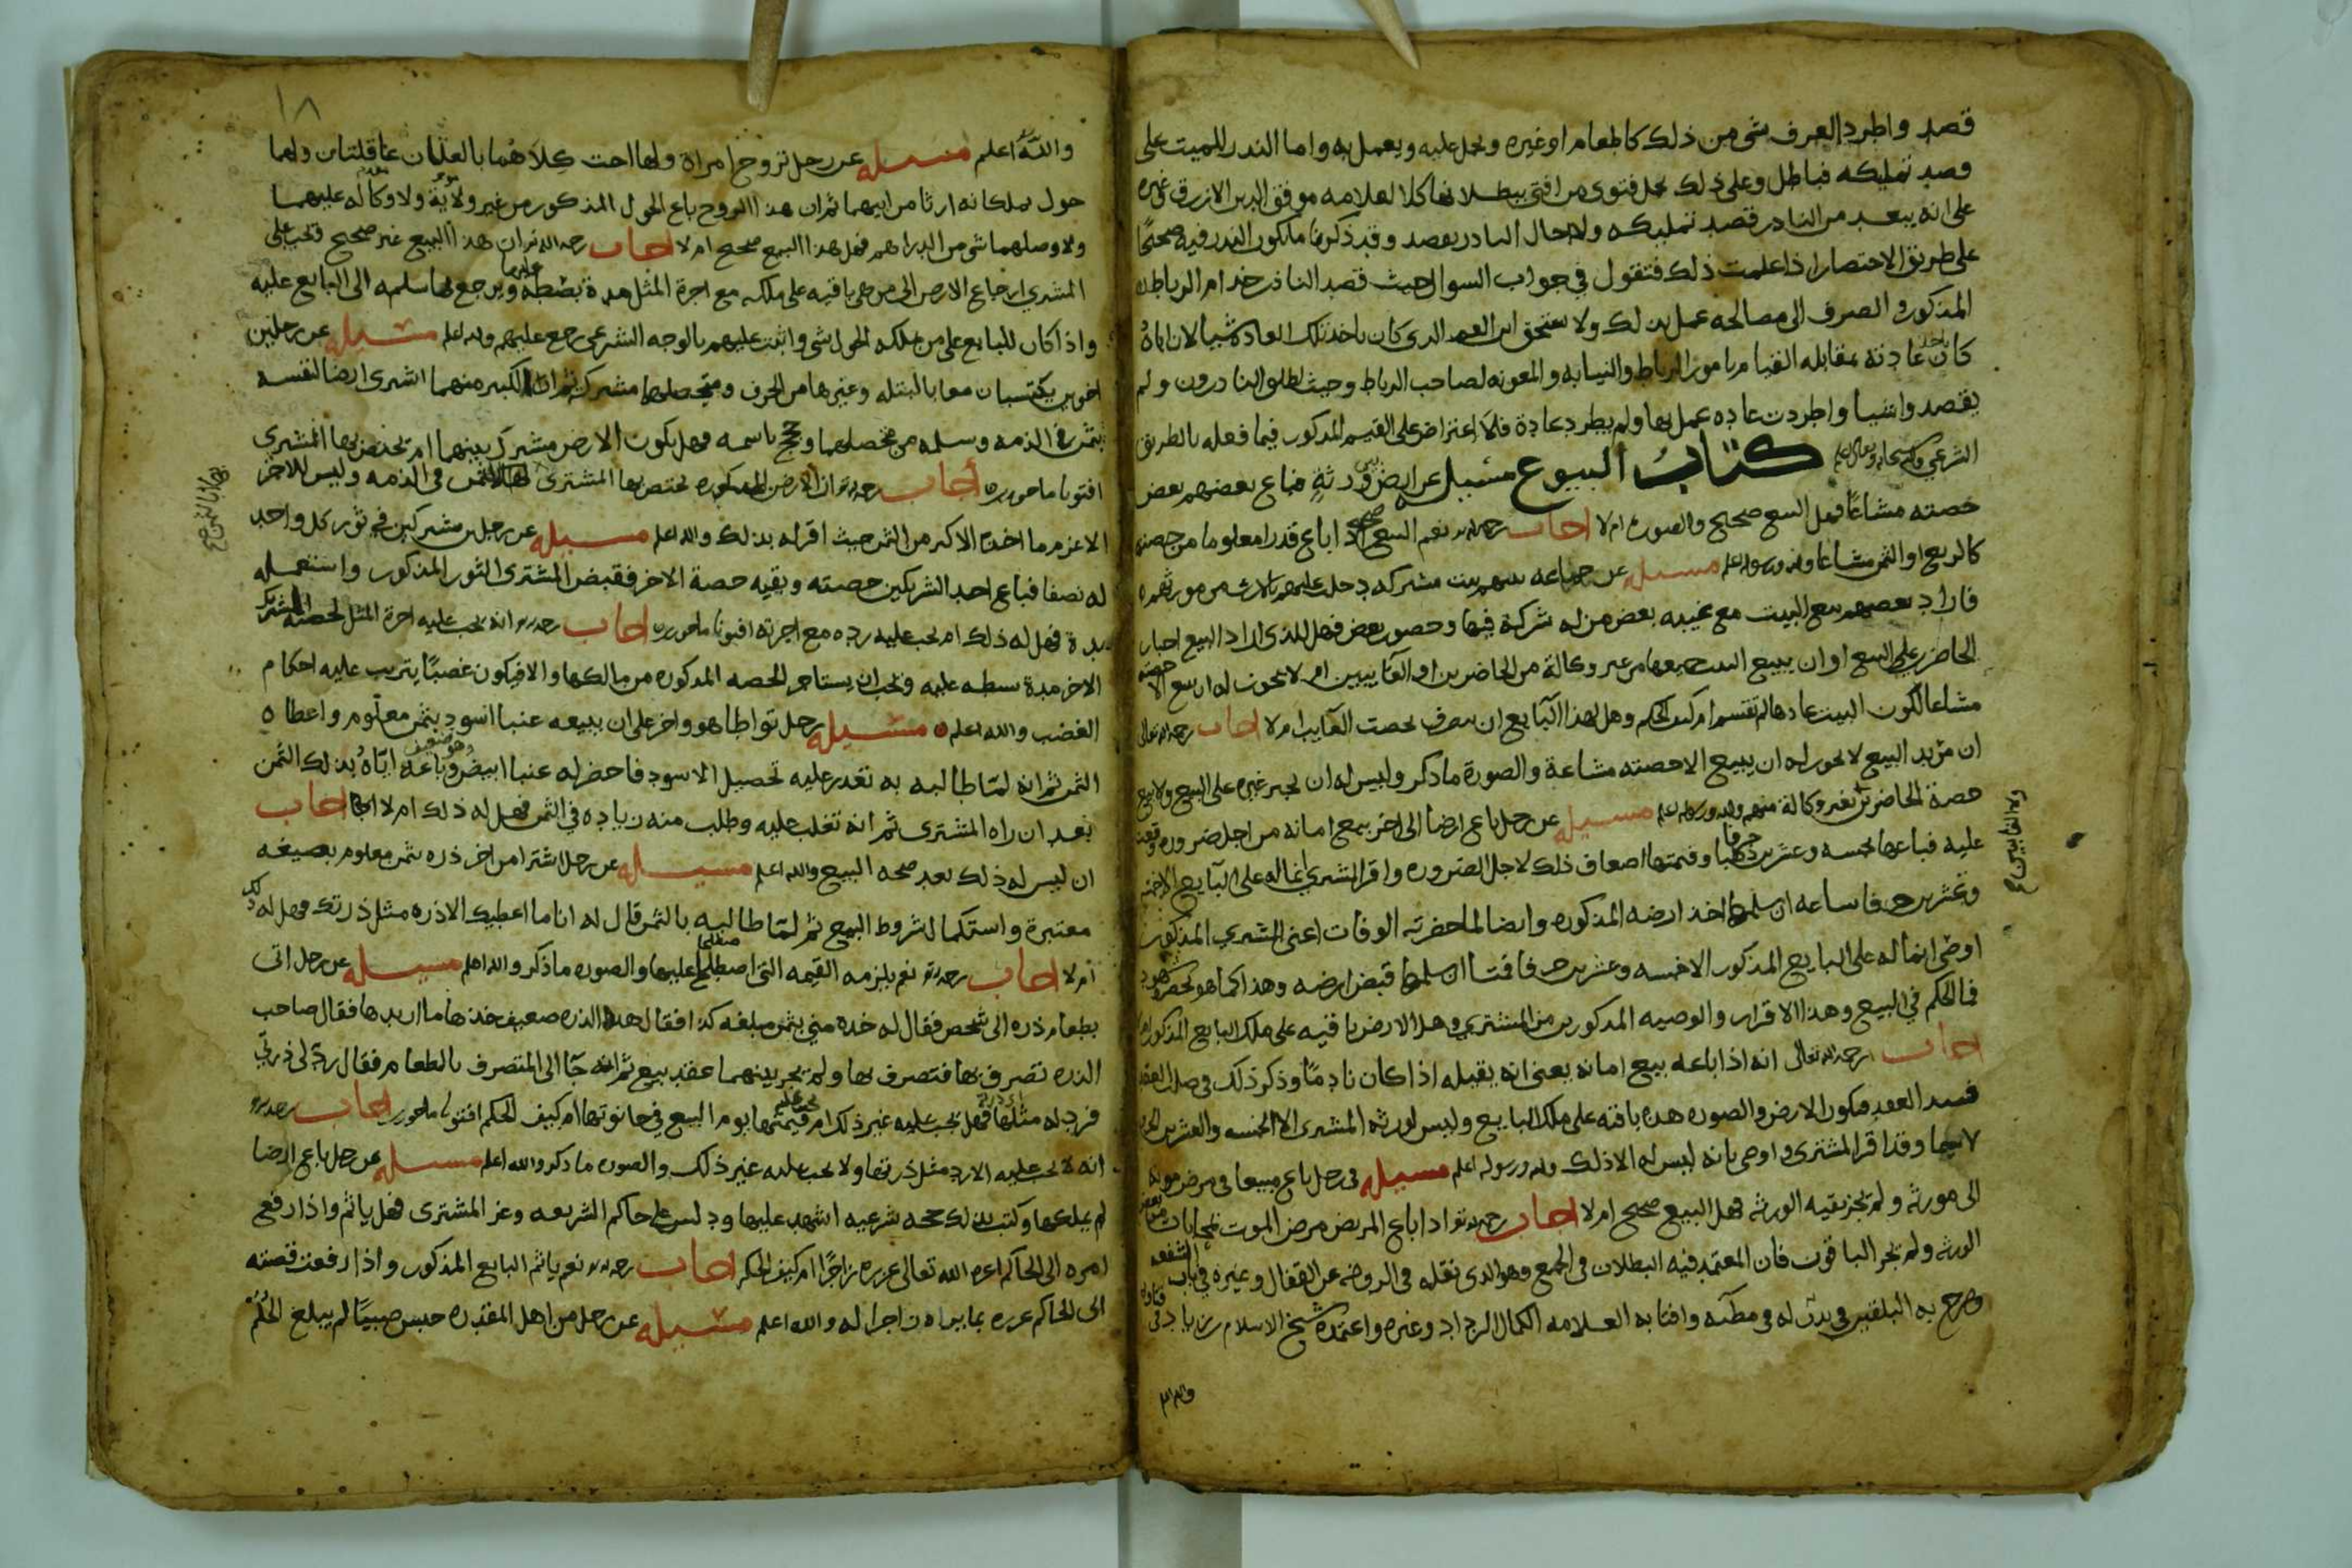 قصد واطرد العرف شي من ذلك كالطعام او غيره وحمل عليه ويعمل به واما النذر للميت على
قصد تمليكه فباطل وعلى ذلك يحمل فتوى من افتى ببطلانها كالعلامه موفق الدين الازرق وغيره
على انه يبعد من الناذر قصد تمليكه ولا حال الناذر يقصد وقد ذكرنا ما يكون النذر فيه صحيحًا
على طريق الاختصار اذا علمت ذلك فتقول في جواب السوال حيث قصد الناذر خدام الرباط
المذكوره الصرف الى مصالحه عمل بذلك ولا يستحق ابن العم الذي كان ياخذ تلك العادة شيا لان اباهُ
كان ياخذ عادته بمقابله القيام بامور الرباط والنيابه والمعونه لصاحب الرباط وحيث اطلق الناذرون ولم
يقصدوا شيا واطردت عاده عمل بها ولم يطرد عادة فلا اعتراض على القيم المذكور فيما فعله بالطريق
الشرعي والله سبحانه وتعالى اعلم كتابُ البيوع مسيله عن ارض بين ورثةٍ فباع بعضهم بعض
حصته مشاعًا فهل البيع صحيح والصوره ام لا اجاب رحمه الله نعم البيع صحيح اذا باع قدرا معلوما من حصته
كالربع او الثمن مشاعا والله ورسوله اعلم مسيله عن جماعه بينهم بيت مشتركه دخلت عليهم بالارث من مورثهم
فاراد بعضهم بيع البيت مع غيبه بعض من له شركة فيها وحضور بعض فهل للذي اراد البيع اجبار
الحاضر على البيع او ان يبيع البيت جميعها من غير وكالة من الحاضرين او الغايبين ام لا يجوز له ان يبيع الا حصته
مشاعا لكون البيت عادها لم تقسم ام كيف الحكم وهل لهذا البايع ان يتصرف بحصت الغايب ام لا اجاب رحمه الله تعالى
ان مريد البيع لا يجوز له ان يبيع الا حصته مشاعة والصورة ما ذكر وليس له ان يجبر غيره على البيع ولا بيع
حصة الحاضرين بغير وكالة منهم والله ورسوله اعلم مسيله عن رجل باع ارضا الى اخر بيع امانه من اجل ضروره وقعت
عليه فباعها بخمسه وعشرين حرفا وقيمتها اضعاف ذلك لاجل الضروره واقر المشتري انما له على البايع الا خمسه
وعشرين حرفا ساعه ان سلمها اخذ ارضه المذكوره وايضا لما حضرته الوفات اعني المشتري المذكور
اوصى انما له على البايع المذكور الا خمسه وعشرين حرفا متا ان سلمها قبض ارضه وهذا كما هو
فما الحكم في البيع وهذا الاقرار والوصيه المذكورين من المشتري وهل الارض باقيه على ملك البايع المذكور ام لا
اجاب رحمه الله تعالى انه اذا باعه بيع امانه يعني انه يقبله اذا كان نادمًا وذكر ذلك في صلب العقد
فسد العقد فتكون الارض والصوره هذه باقيه على ملك البايع وليس لورثه المشتري الا الخمسه والعشرين الحرف
وقد اقر المشتري واوصى بانه ليس له الا ذلك والله ورسوله اعلم مسيله في رجل باع مبيعا في مرض موته
الى مورثه ولم تجز بقيه الورثه فهل البيع صحيح ام لا اجاب رحمه الله اذا باع المريض مرض الموت بمحابات بعض
الورثه ولم يجز الباقون فان المعتمد فيه البطلان في الجميع وهو الذي نقله في الروضه عن القفال وغيره في باب الشفعه
وصرح به البلقيني في تدريبه وافتا به العلامه الكمال الرداد وغيره واعتمده شيخ الاسلام بن زياد في فتاوه
والله اعلم
وهو الغايبين ع
١٨
والله اعلم مسيله عن رجل تزوج امراة ولها اخت كلاهما بالغتان عاقلتان ولهما
حول يملكانه ارثا من ابيهما ثم ان هذا الزوج باع الحول المذكور من غير ولاية ولا وكاله عليهما
ولا وصلهما شي من الدراهم فهل هذا البيع صحيح ام لا اجاب رحمه الله ان هذا البيع غير صحيح فيجب على
المشتري ارجاع الارض الى من هي باقيه على ملكه مع اجرة المثل مدة بسطه عليها ويرجع بما سلمه الى البايع عليه
واذا كان للبايع على من يملكه الحول شي واثبت عليهم بالوجه الشرعي رجع عليهم والله اعلم مسيله عن رجلين
اخوين يكتسبان معا بالبتله وغيرها من الحرف ومتحصلهما مشترك ثم ان الكبير منهما اشترى ارضا لنفسه
بثمن في الذمه وسلمه من متحصلهما وحجج باسمه فهل يكون الارض مشتركة بينهما ام يختص بها المشتري
افتونا ماجورين أجاب رحمه الله ان الارض المذكوره يختص بها المشتري لها بالثمن في الذمه وليس للاخر
الا غرم ما اخذه الاكبر من الثمن حيث اقر له بذلك والله اعلم مسيله عن رجلين مشتركين في ثور كل واحد
له نصفا فباع احد الشريكين حصته وبقيه حصة الاخر فقبض المشتري الثور المذكور واستعمله
مدة فهل له ذلك ام يجب عليه رده مع اجرته افتونا ماجورين اجاب رحمه الله انه يجب عليه اجرة المثل لحصته الشريك
الاخر مدة بسطه عليه ويجب ان يستاجر الحصه المذكوره من مالكها والا فيكون غصبًا يترتب عليه احكام
الغصب والله اعلم مسيله رجل تواطا هو واخر على ان يبيعه عنبا اسود بثمن معلوم واعطاه
الثمن ثم انه لمّا طالبه به تعذر عليه تحصيل الاسود فاحضر له عنبا ابيض وهو ضعيف وباعه اياهُ بذلك الثمن
بعد ان راه المشتري ثم انه تغلب عليه وطلب منه زياده في الثمن فهل له ذلك ام لا اجاب
ان ليس له ذلك بعد صحه البيع والله اعلم مسيله عن رجل اشترا من اخر ذره بثمن معلوم بصيغه
معتبرة واستكمال شروط البيع ثم لمّا طالبه بالثمن قال له انا ما اعطيك الا ذره مثل ذرتك فهل له ذلك
ام لا اجاب رحمه الله نعم يلزمه القيمه التي اصطلحا عليها والصوره ما ذكر والله اعلم مسيله عن رجل اتى
بطعام ذره الى شخص فقال له خذه مني بثمن مبلغه كذا فقال هذا الذره ضعيف خذها ما اريدها فقال صاحب
الذره تصرف بها فتصرف بها ولم يجر بينهما عقد بيع ثم انه جآ الى المتصرف بالطعام فقال ردّ لي ذرتي
فرد له مثلها فهل يجب عليه غير ذلك ام قيمتها يوم البيع في حانوتها ام كيف الحكم افتونا ماجورين اجاب رحمه الله
انه لا يجب عليه الا رد مثل ذرتها ولا يجب عليه غير ذلك والصوره ما ذكر والله اعلم مسيله عن رجل باع ارضا
لم يملكها وكتب بذلك حجه شرعيه اشهد عليها ودلس على حاكم الشريعه وغر المشتري فهل ياثم واذا رفع
امره الى الحاكم اعزه الله تعالى عزره زاجرًا ام كيف الحكم اجاب رحمه الله نعم ياثم البايع المذكور واذا رفعت قصته
الى الحاكم عزره بما يراه زاجرا له والله اعلم مسيله عن رجل من اهل المقدره حبس صبيًا لم يبلغ الحُلُم